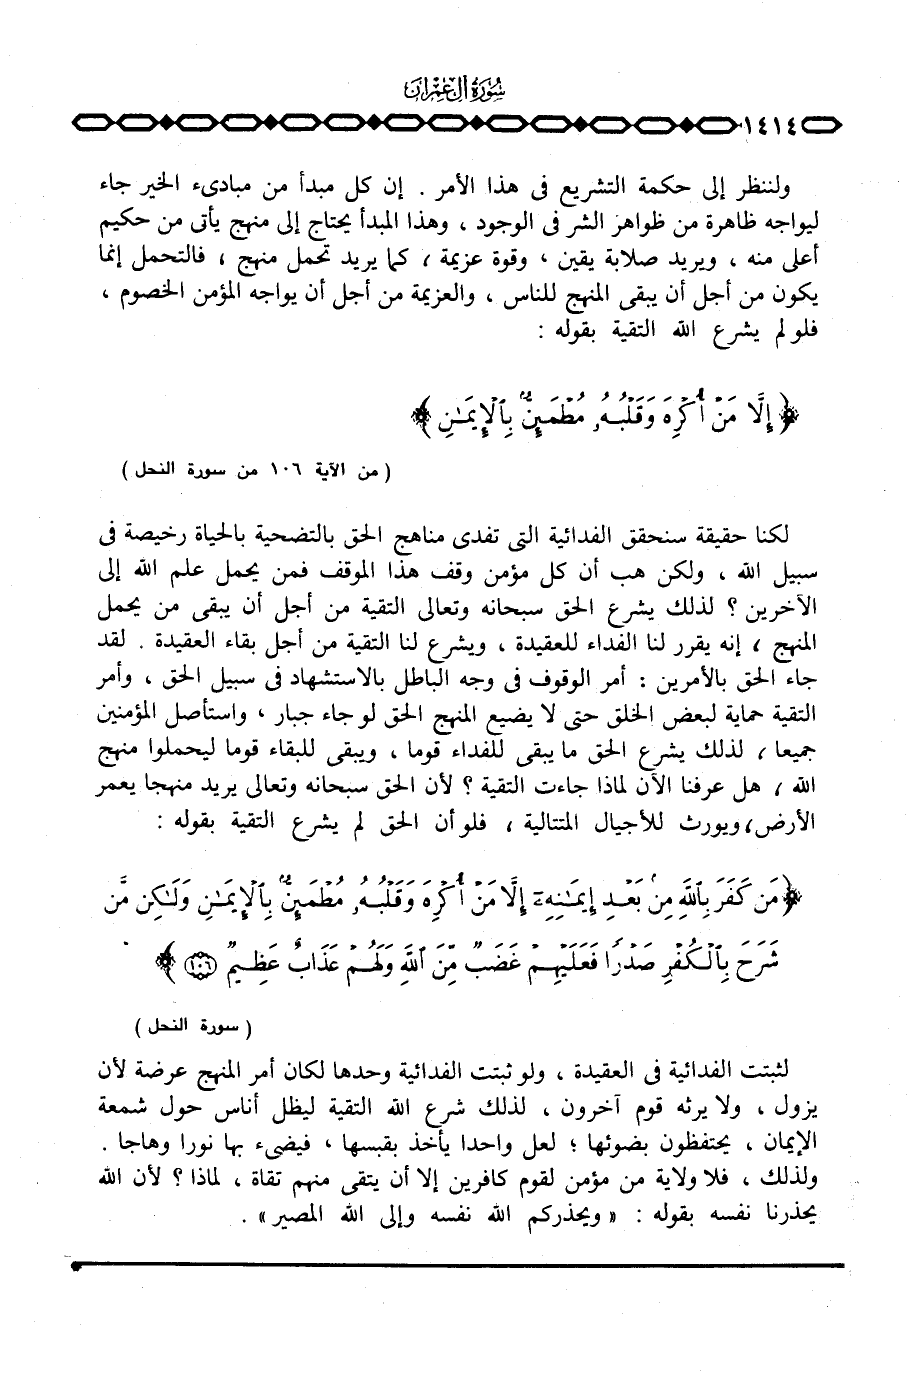 سورة آل عمران
١٤١٤
ولننظر إلى حكمة التشريع فى هذا الأمر . إن كل مبدأ من مبادىء الخير جاء
ليواجه ظاهرة من ظواهر الشر فى الوجود ، وهذا المبدأ يحتاج إلى منهج يأتى من حكيم
أعلى منه ، ويريد صلابة يقين ، وقوة عزيمة ، كما يريد تحمل منهج ، فالتحمل إنما
يكون من أجل أن يبقى المنهج للناس ، والعزيمة من أجل أن يواجه المؤمن الخصوم ،
فلو لم يشرع الله التقية بقوله :
﴿ إِلَّا مَنْ أُكْرِهَ وَقَلْبُهُۥ مُطْمَئِنٌّۢ بِٱلْإِيمَٰنِ ﴾
( من الآية ١٠٦ من سورة النحل )
لكنا حقيقة سنحقق الفدائية التى تفدى مناهج الحق بالتضحية بالحياة رخيصة فى
سبيل الله ، ولكن هب أن كل مؤمن وقف هذا الموقف فمن يحمل علم الله إلى
الآخرين ؟ لذلك يشرع الحق سبحانه وتعالى التقية من أجل أن يبقى من يحمل
المنهج ، إنه يقرر لنا الفداء للعقيدة ، ويشرع لنا التقية من أجل بقاء العقيدة . لقد
جاء الحق بالأمرين : أمر الوقوف فى وجه الباطل بالاستشهاد فى سبيل الحق ، وأمر
التقية حماية لبعض الخلق حتى لا يضيع المنهج الحق لو جاء جبار ، واستأصل المؤمنين
جميعا ، لذلك يشرع الحق ما يبقى للفداء قوما ، ويبقى للبقاء قوما ليحملوا منهج
الله ، هل عرفنا الآن لماذا جاءت التقية ؟ لأن الحق سبحانه وتعالى يريد منهجا يعمر
الأرض ، ويورث للأجيال المتتالية ، فلو أن الحق لم يشرع التقية بقوله :
﴿ مَن كَفَرَ بِٱللَّهِ مِنۢ بَعْدِ إِيمَٰنِهِۦٓ إِلَّا مَنْ أُكْرِهَ وَقَلْبُهُۥ مُطْمَئِنٌّۢ بِٱلْإِيمَٰنِ وَلَٰكِن مَّن
شَرَحَ بِٱلْكُفْرِ صَدْرًا فَعَلَيْهِمْ غَضَبٌ مِّنَ ٱللَّهِ وَلَهُمْ عَذَابٌ عَظِيمٌ ١٠٦ ﴾
( سورة النحل )
لثبتت الفدائية فى العقيدة ، ولو ثبتت الفدائية وحدها لكان أمر المنهج عرضة لأن
يزول ، ولا يرثه قوم آخرون ، لذلك شرع الله التقية ليظل أناس حول شمعة
الإيمان ، يحتفظون بضوئها ؛ لعل واحدا يأخذ بقبسها ، فيضىء بها نورا وهاجا .
ولذلك ، فلا ولاية من مؤمن لقوم كافرين إلا أن يتقى منهم تقاة ، لماذا ؟ لأن الله
يحذرنا نفسه بقوله : « ويحذركم الله نفسه وإلى الله المصير » .